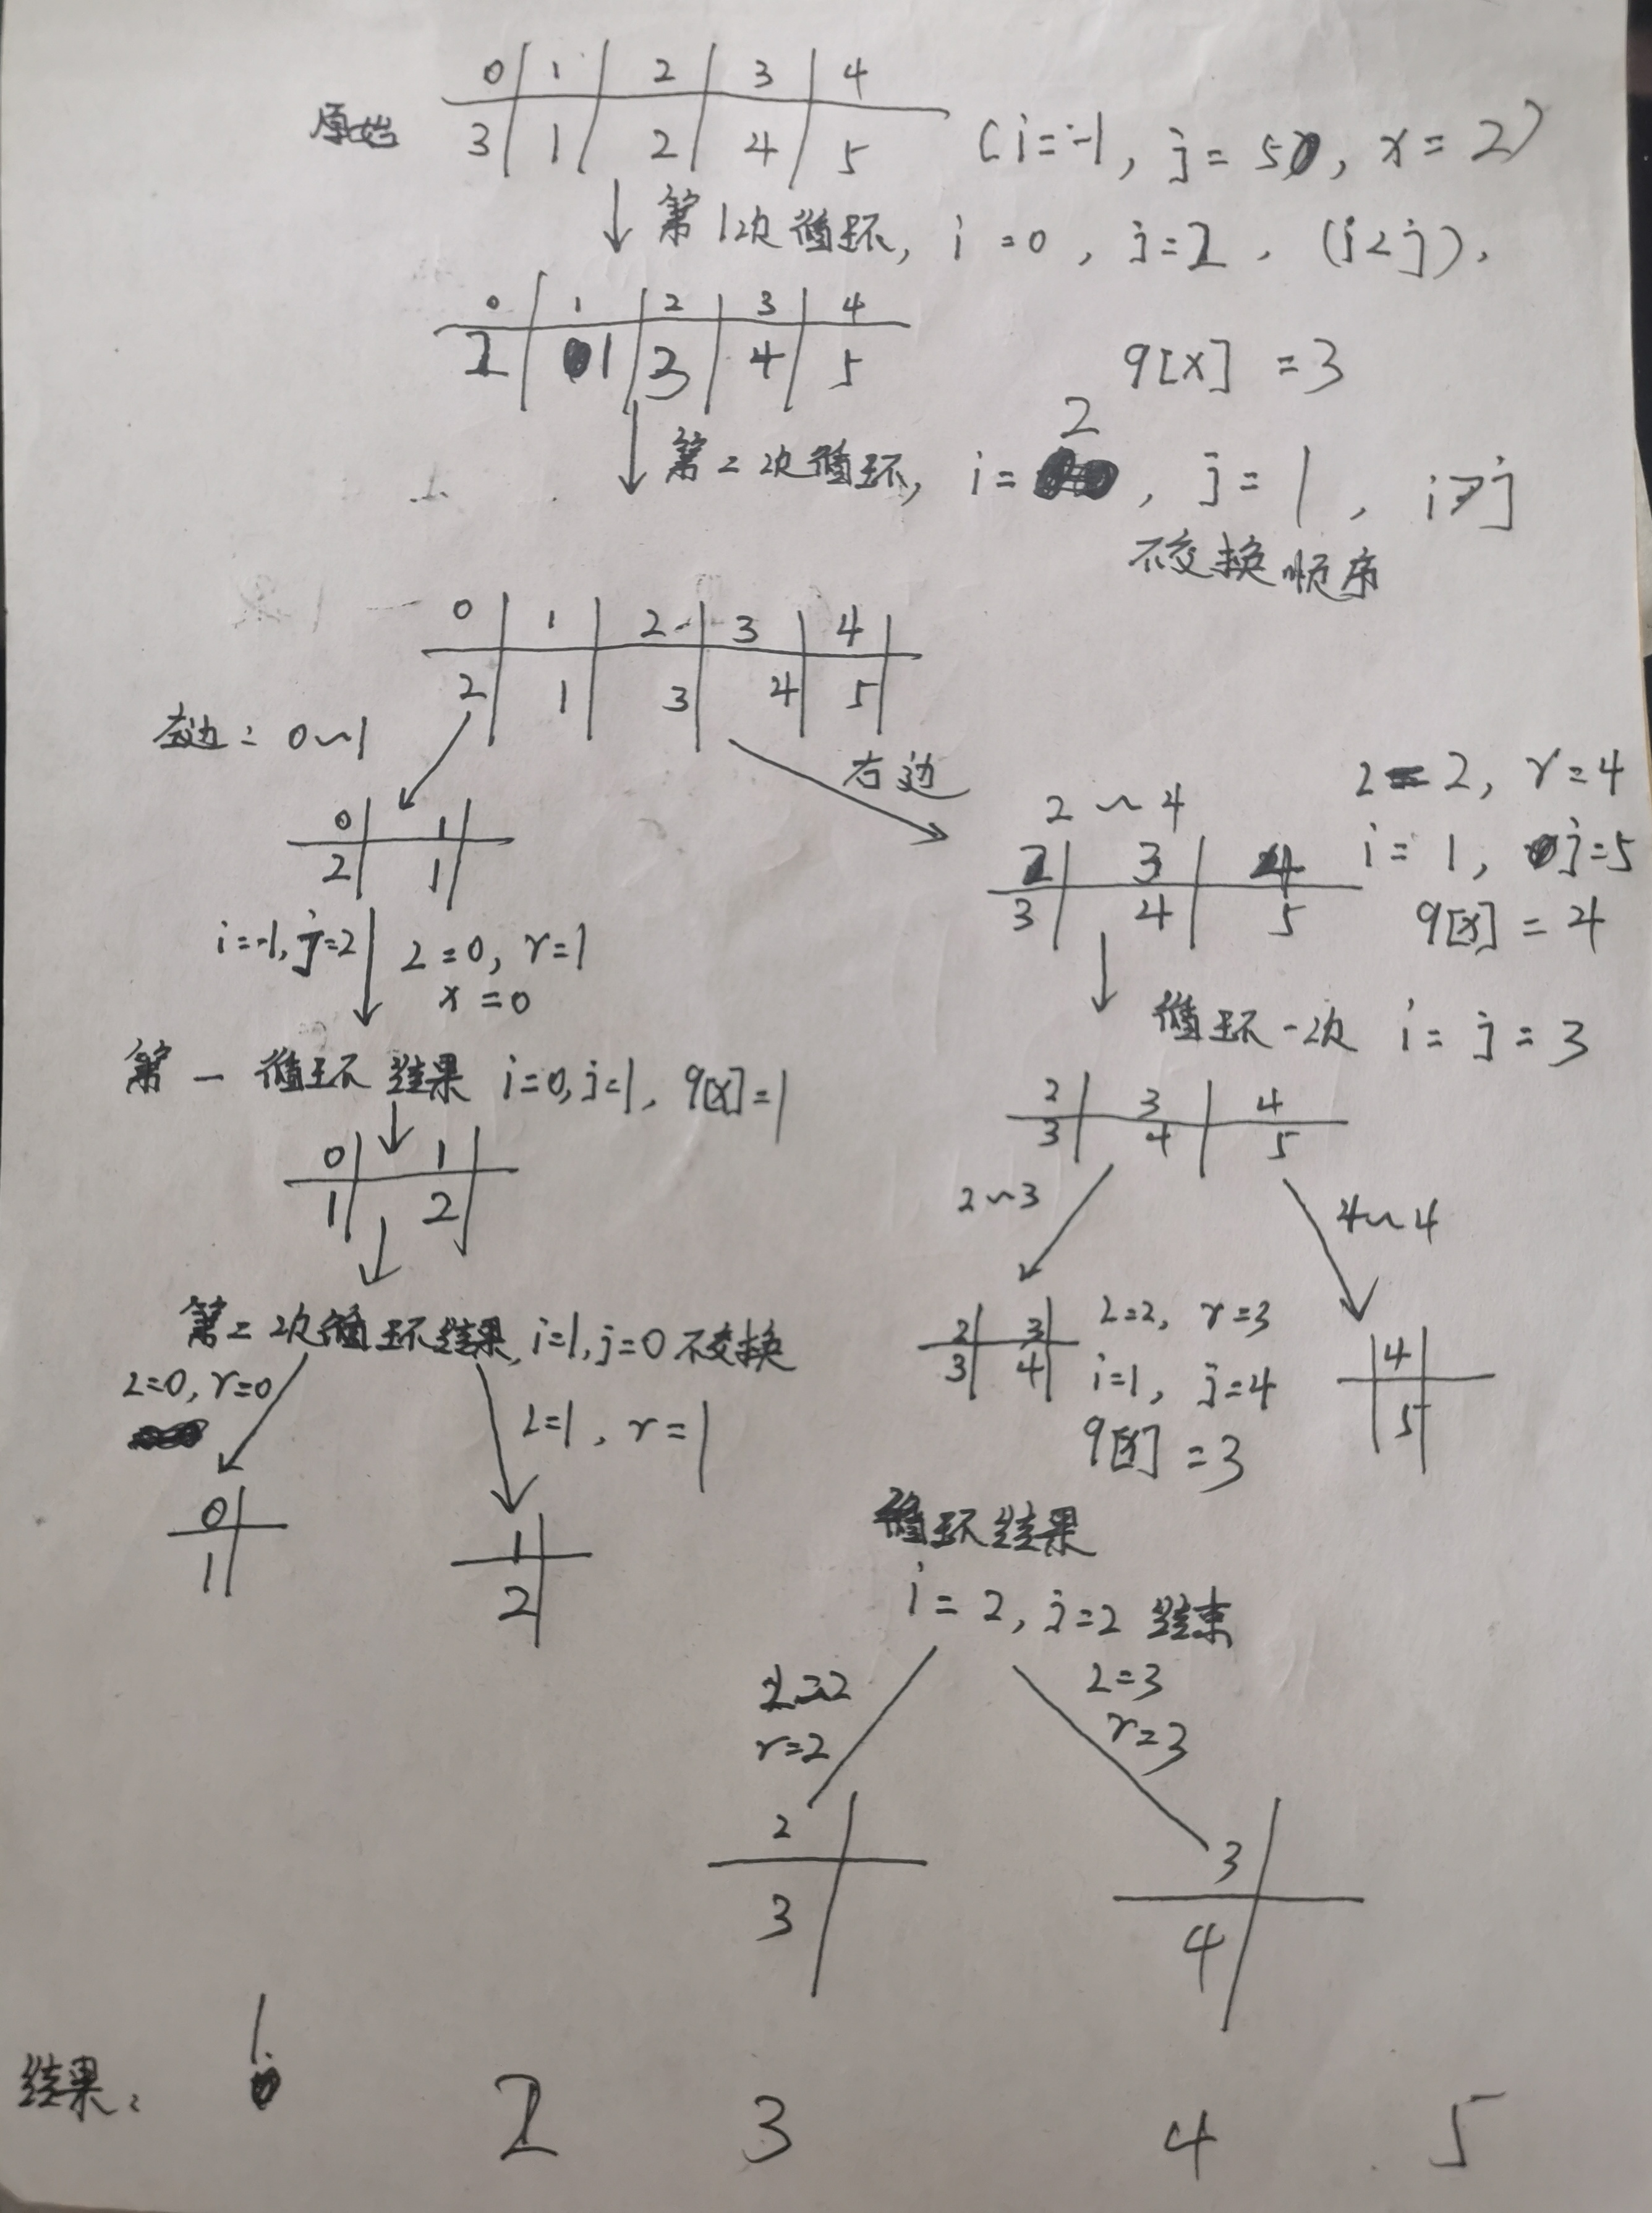 0 1 2 3 4
原始 3 1 2 4 5 (i=-1, j=5, x=2)
第1次循环, i=0, j=2, (i<j).
0 1 2 3 4
2 1 3 4 5
q[x]=3
第二次循环, i=2, j=1, i>j
不交换顺序
0 1 2 3 4
2 1 3 4 5
左边: 0~1
0 1
2 1
i=-1, j=2
l=0, r=1
x=0
第一循环结果 i=0, j=1, q[x]=1
0 1
1 2
第二次循环结果, i=1, j=0 不交换
l=0, r=0
0
1
l=1, r=1
1
2
右边
2~4
2 3 4
3 4 5
l=2, r=4
i=1, j=5
q[x]=4
循环一次 i=j=3
2 3 4
3 4 5
2~3
2 3
3 4
l=2, r=3
i=1, j=4
q[x]=3
4~4
4
5
循环结果
i=2, j=2 结束
l=2
r=2
2
3
l=3
r=3
3
4
结果: 1 2 3 4 5